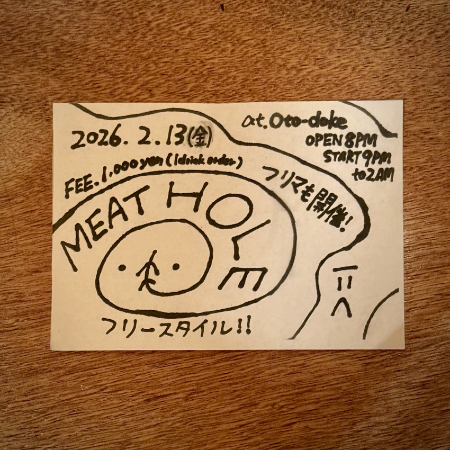 2026. 2. 13(金)
at. Oto-doke
OPEN 8PM
START 9PM
to 2AM
FEE. 1,000yen (1drink order)
フリマも開催!
MEAT HOLE
フリースタイル!!